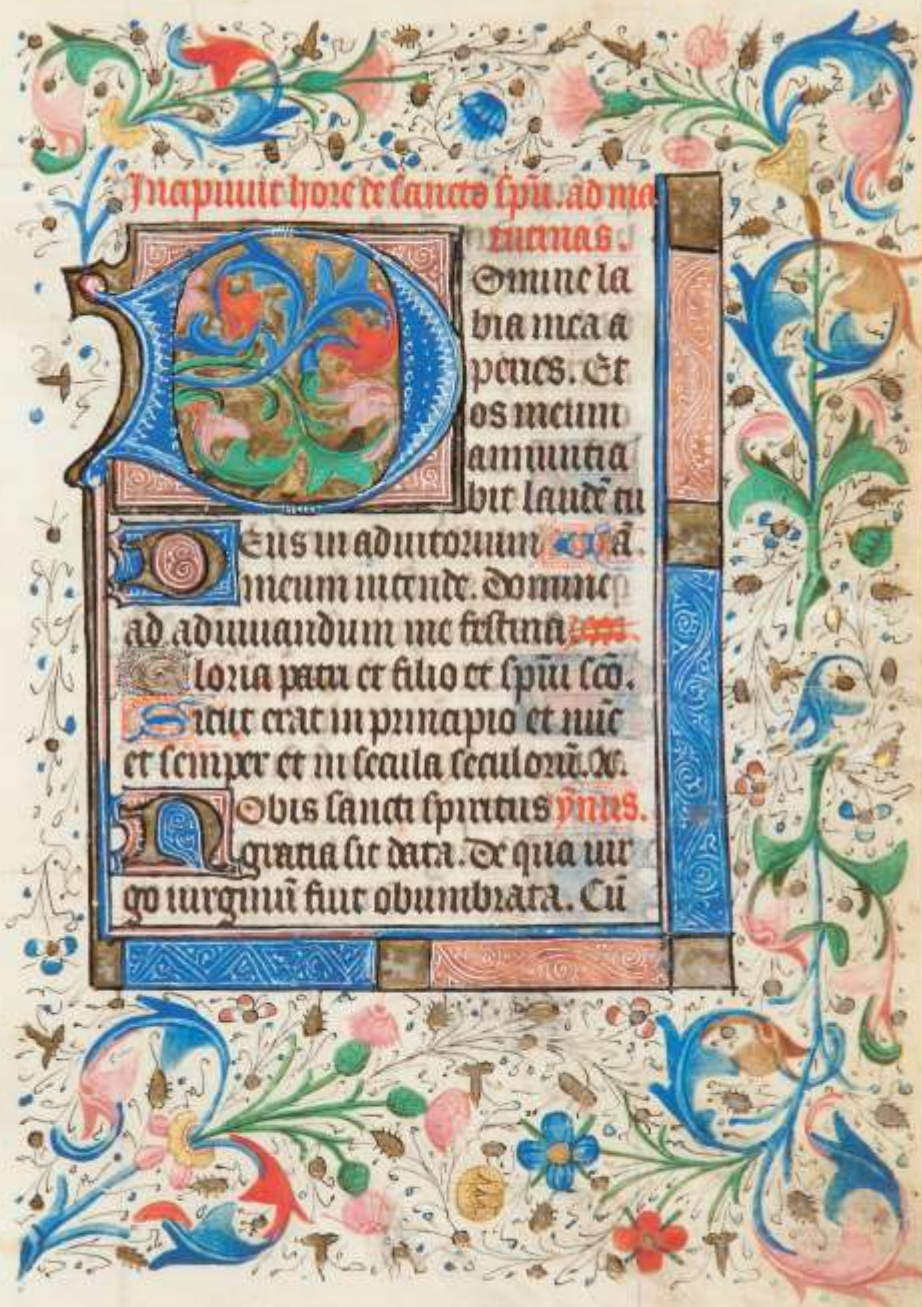 Incipiunt hore de sancto spū. ad ma
tutinas.
Domine la
bia mea a
peries. Et
os meum
annuntia
bit laudē tu
Deus in adiutorium ā.
meum intende. Domine
ad adiuuandum me festina.
Gloria patri et filio et spūi scō.
Sicut erat in principio et nūc
et semper et in secula seculorū. A.
Nobis sancti spiritus ẏmnus.
gratia sit data. De qua uir
go uirginū fiuit obumbrata. Cū